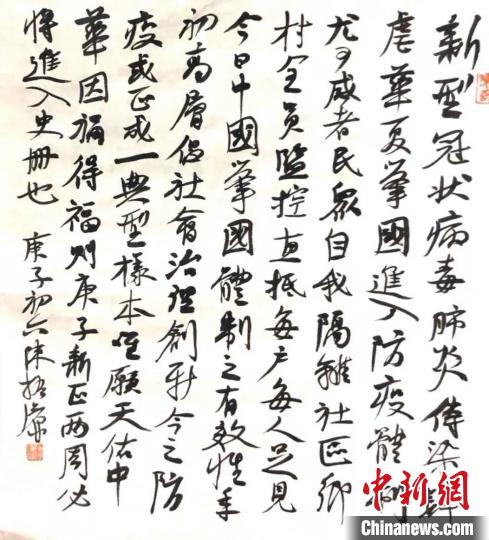 新型冠状病毒肺炎傳染肆
虐華夏舉國進入防疫體制
尤可感者民眾自我隔離社區鄉
村全員監控直抵每户每人足見
今日中國舉國體制之有效性年
初高層倡社會治理創新今之防
疫或正成一典型樣本唯願天佑中
華因禍得福則庚子新正兩周必
將進入史冊也 庚子初六陳振濂
中新網
Chinanews.com